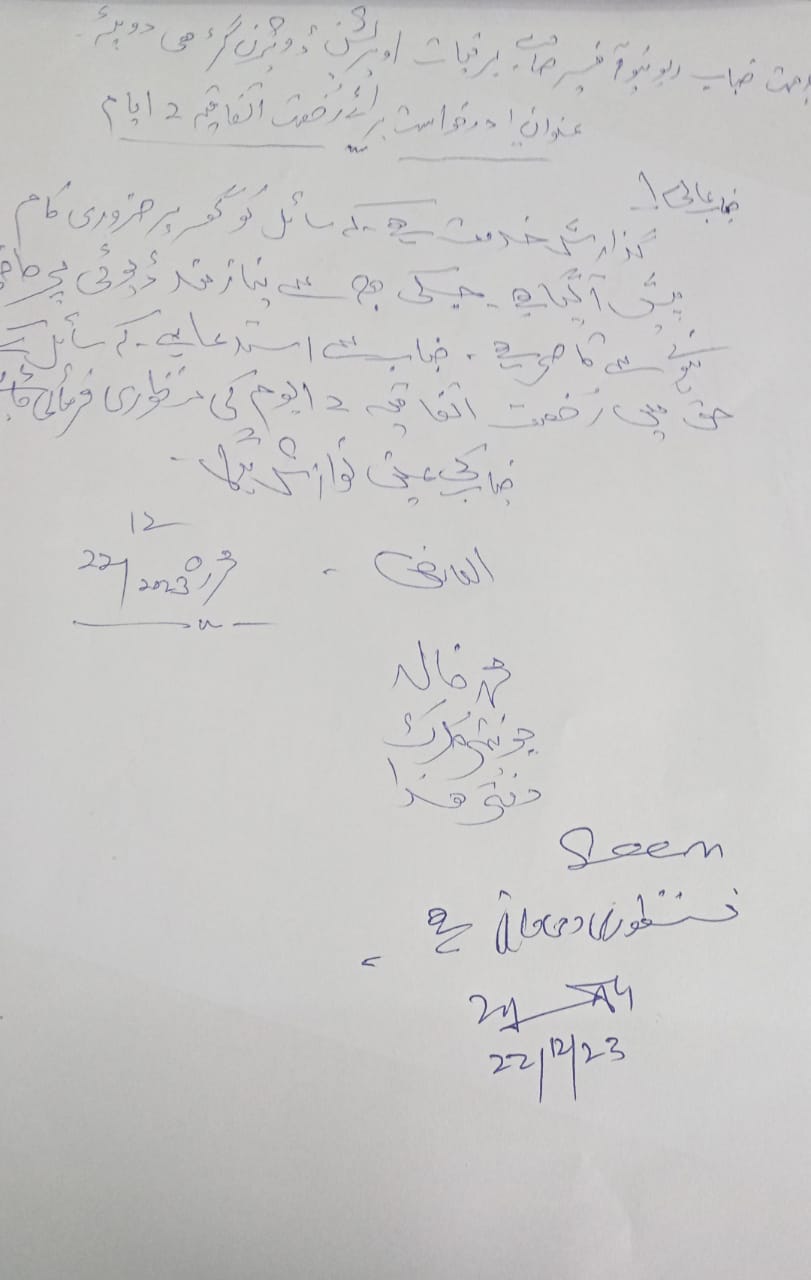 بخدمت جناب ریونیو آفیسر صاحب برقیات اوپریشن ڈویژن گڑھی دوپٹہ۔
عنوان! درخواست برائے رخصت اتفاقیہ 2 ایام
جناب عالی!
گذارش خدمت ہے۔ کہ سائل کو گھر پر ضروری کام
پیش آگیا ہے۔ جسکی وجہ سے نیازمند ڈیوٹی پر حاضر
ہونے سے قاصر ہے۔ جناب سے استدعا ہے۔ کہ سائل کے
حق میں رخصت اتفاقیہ 2 ایوم کی منظوری فرمائی جائے
جناب کی عین نوازش ہوگی۔
العارض
مورخہ 22/12/2023
محمد خالد
جونیئر کلرک
دفتر ھذا
Seen
منظوری دی جاتی ہے۔
22/12/23